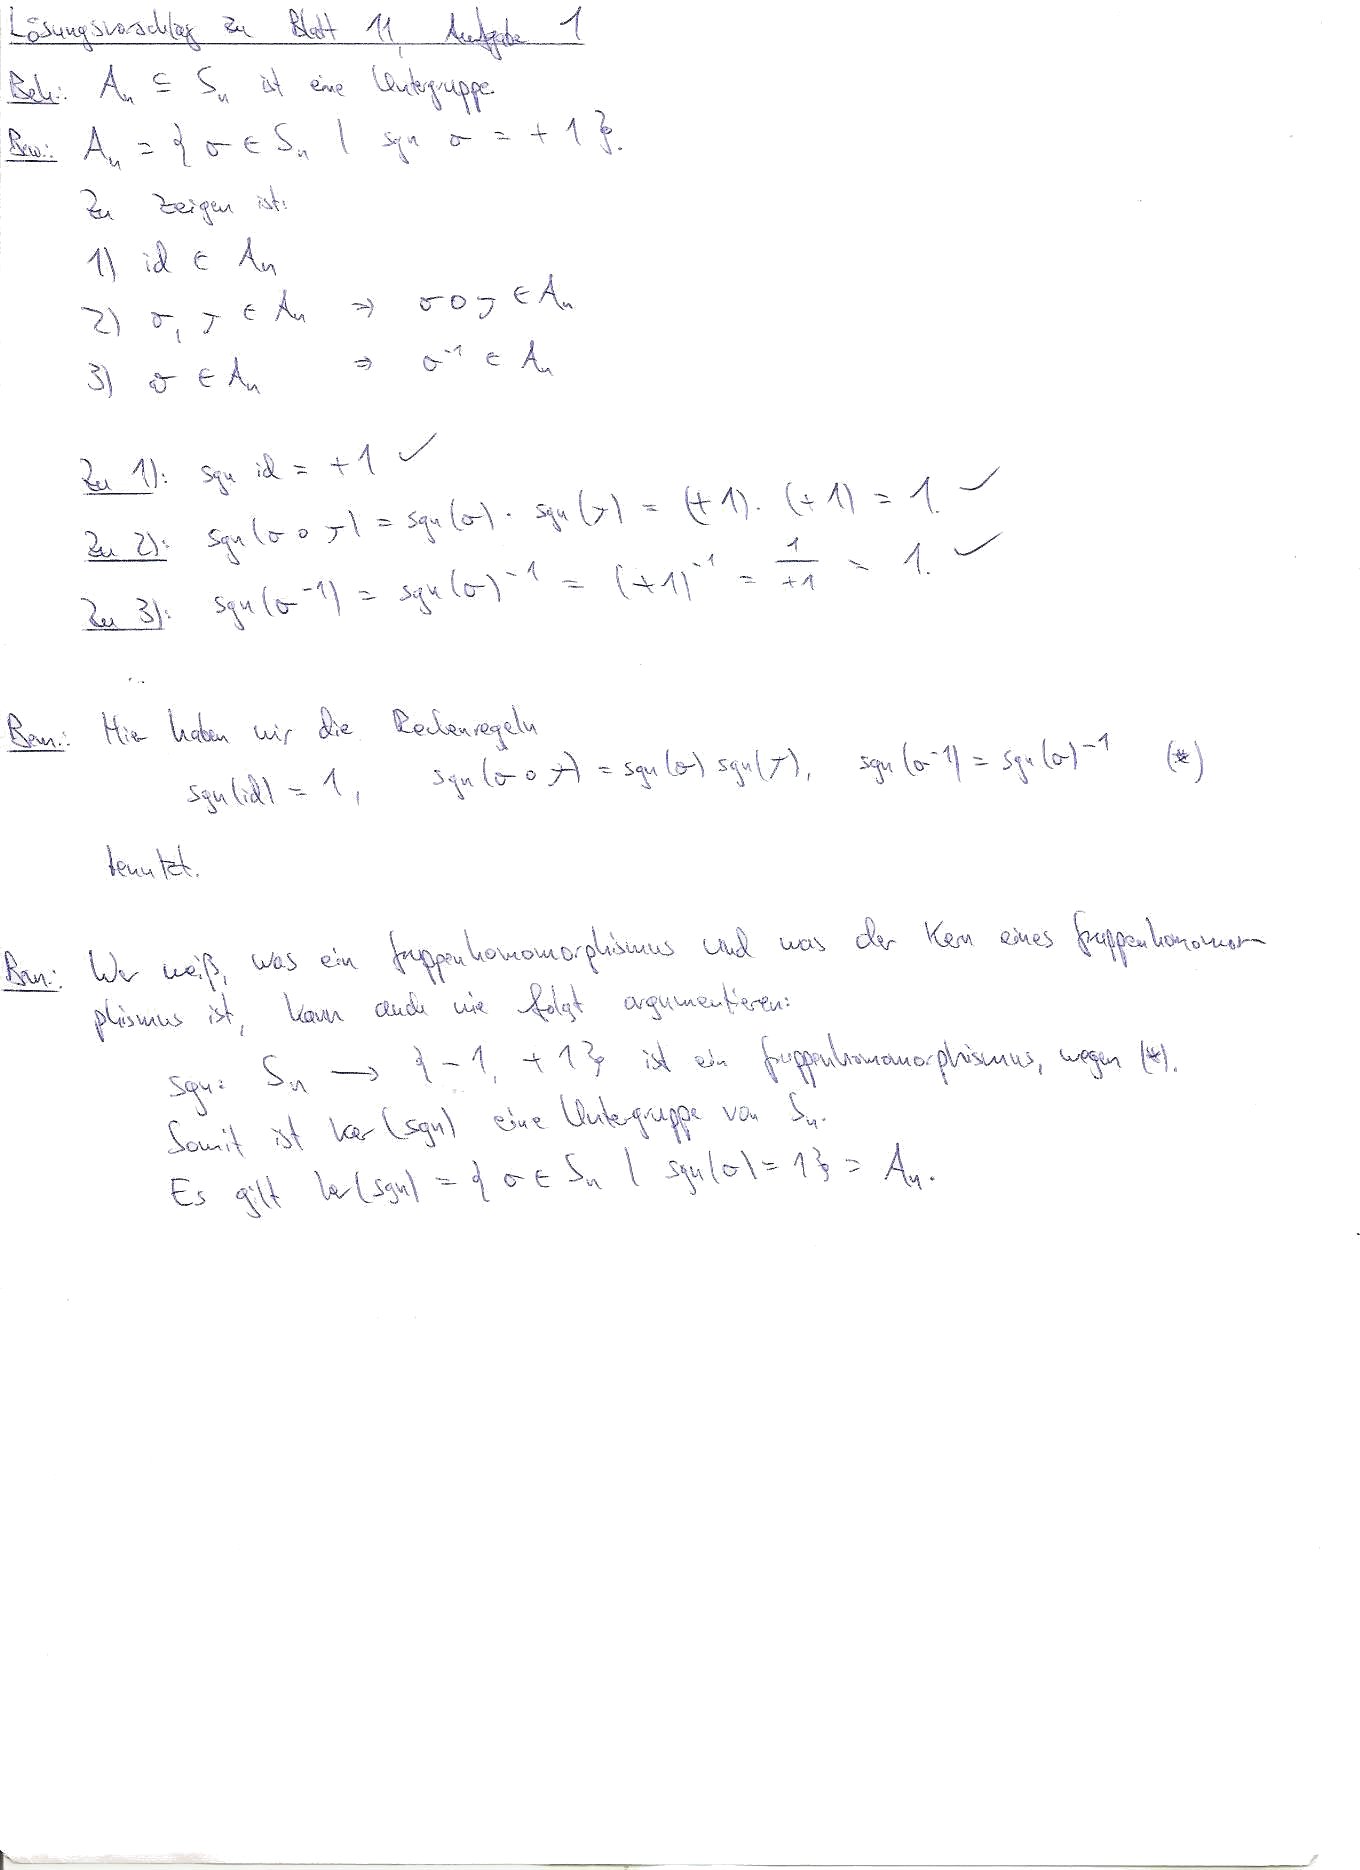 Lösungsvorschlag zu Blatt 11, Aufgabe 1
Beh.: Aₙ ⊆ Sₙ ist eine Untergruppe
Bew.: Aₙ = { σ ∈ Sₙ | sgn σ = +1 }.
Zu zeigen ist:
1) id ∈ Aₙ
2) σ, τ ∈ Aₙ ⇒ σ ∘ τ ∈ Aₙ
3) σ ∈ Aₙ ⇒ σ⁻¹ ∈ Aₙ
Zu 1): sgn id = +1 ✓
Zu 2): sgn(σ ∘ τ) = sgn(σ) · sgn(τ) = (+1) · (+1) = 1. ✓
Zu 3): sgn(σ⁻¹) = sgn(σ)⁻¹ = (+1)⁻¹ = 1/+1 = 1. ✓
Bem.: Hier haben wir die Rechenregeln
sgn(id) = 1, sgn(σ ∘ τ) = sgn(σ) sgn(τ), sgn(σ⁻¹) = sgn(σ)⁻¹ (*)
benutzt.
Bem.: Wer weiß, was ein Gruppenhomomorphismus und was der Kern eines Gruppenhomomor-
phismus ist, kann auch wie folgt argumentieren:
sgn: Sₙ → {-1, +1} ist ein Gruppenhomomorphismus, wegen (*).
Somit ist ker(sgn) eine Untergruppe von Sₙ.
Es gilt ker(sgn) = { σ ∈ Sₙ | sgn(σ) = 1 } = Aₙ.